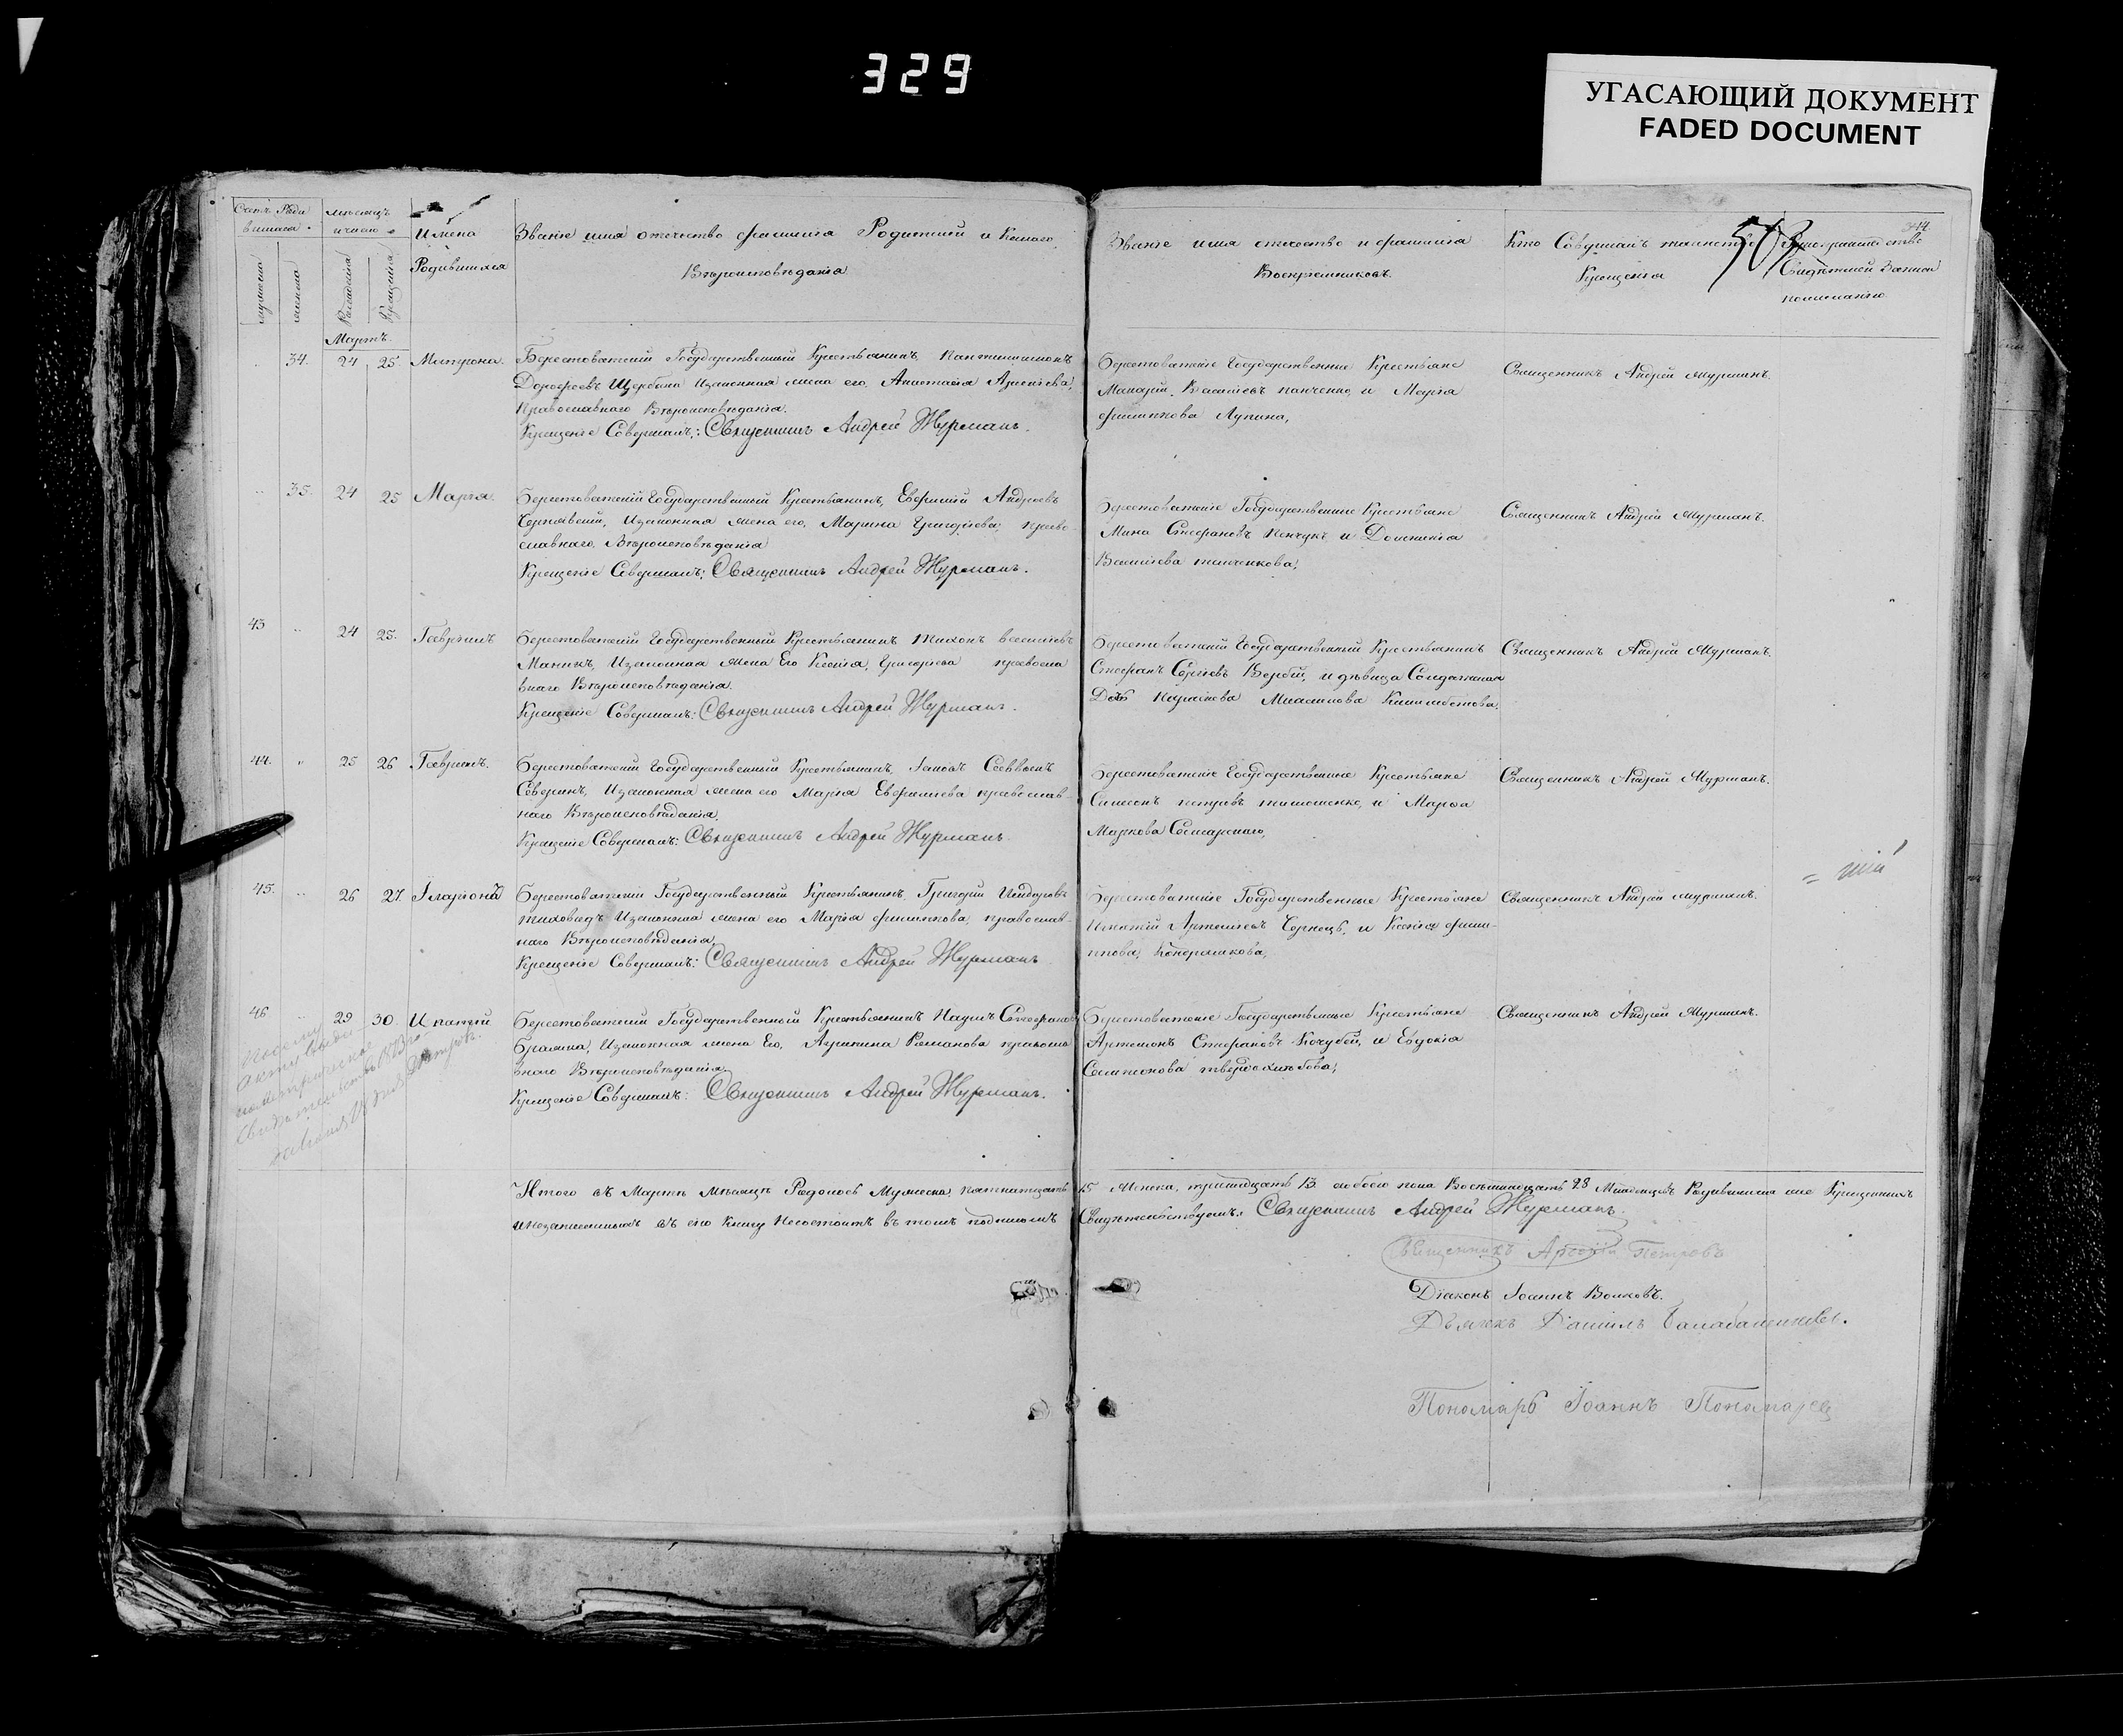 329
УГАСАЮЩИЙ ДОКУМЕНТ
FADED DOCUMENT
344
503
Счетъ Роди
вшихся.
мѣсяцъ
и число
Имена
Родившихся
Званіе имя отечество фамилія Родителей и Какого
Вѣроисповѣданія
мужеска
женска
Рожденія
Крещенія
Мартъ.
Званіе имя отчество и фамилія
Воспріемниковъ.
Кто Совершалъ таинство
Крещенія
Рукоприкладство
Свидѣтелей Записи
по желанію.
34. 24 25. Матрона. Берестоватскій Государственный Крестьянинъ, Пантилимонъ
Дорофеевъ Щербина Изаконная жена его, Анастасія Арсеніева,
Православнаго Вѣроисповѣданія.
Крещеніе Совершалъ: Священникъ Андрей Журманъ.
Берестоватскіе Государственные Крестьяне
Макарій Васильевъ панченко, и Марѳа
филиппова Лупина,
Священникъ Андрей Журманъ.
35. 24 25 Марія. Берестоватскій Государственный Крестьянинъ, Евфимій Андреевъ
Чернявскій, Изаконная жена его, Марина Григоріева, право-
славнаго, Вѣроисповѣданія
Крещеніе Совершалъ: Священникъ Андрей Журманъ.
Берестоватскіе Государственные Крестьяне
Мина Стефановъ и Домникія
Васильева
Священникъ Андрей Журманъ.
43 24 25. Гавріилъ Берестоватскій Государственный Крестьянинъ Тихонъ васильевъ
Изаконная жена Его Ксенія, Григорьева правосла
внаго Вѣроисповѣданія.
Крещеніе Совершалъ: Священникъ Андрей Журманъ.
Берестоватскій Государственный Крестьянинъ
Стефанъ Сергѣевъ Вербій, и дѣвица Солдатская
Дочь
Священникъ Андрей Журманъ.
44. 25 26 Гавріилъ. Берестоватскій Государственный Крестьянинъ, Іаковъ Саввинъ
Северинъ, Изаконная жена его Марія Евфиміева православ-
наго Вѣроисповѣданія.
Крещеніе Совершалъ: Священникъ Андрей Журманъ.
Берестоватскіе Государственные Крестьяне
Симеонъ петровъ тимошенко, и Марѳа
Маркова
Священникъ Андрей Журманъ.
45. 26 27. Іларіонъ Берестоватскій Государственный Крестьянинъ, Григорій Исидоровъ
тиховидъ Изаконная жена его Марія филиппова, православ-
наго Вѣроисповѣданія
Крещеніе Совершалъ: Священникъ Андрей Журманъ
Берестоватскіе Государственные Крестьяне
Игнатій Артемьевъ Чернецъ, и Ксенія фили-
ппова, Кондрашкова,
Священникъ Андрей Журманъ.
46 29 30 Ипатій Берестоватскій Государственный Крестьянинъ Наумъ Стефановъ
Изаконная жена Его, Агрипина Романова правосла
внаго Вѣроисповѣданія
Крещеніе Совершалъ: Священникъ Андрей Журманъ.
Берестоватскіе Государственные Крестьяне
Артемонъ Стефановъ Кочубей, и Евдокія
Семионова твердохлѣбова,
Священникъ Андрей Журманъ.
Итого въ Мартѣ Мѣсяцѣ Родилось Мужеска, пятнатцать 15 Женска, тринадцать 13. обоего пола 28 Младенцевъ Родившихся и Крещенныхъ
инезаписанныхъ въ сію Книгу Несостоитъ въ томъ подписомъ Свидѣтельствуемъ: Священникъ Андрей Журманъ.
Священникъ Петровъ
Діаконъ Іоаннъ Волковъ.
Дьячекъ Даніилъ
Пономарь Іоаннъ Пономарев